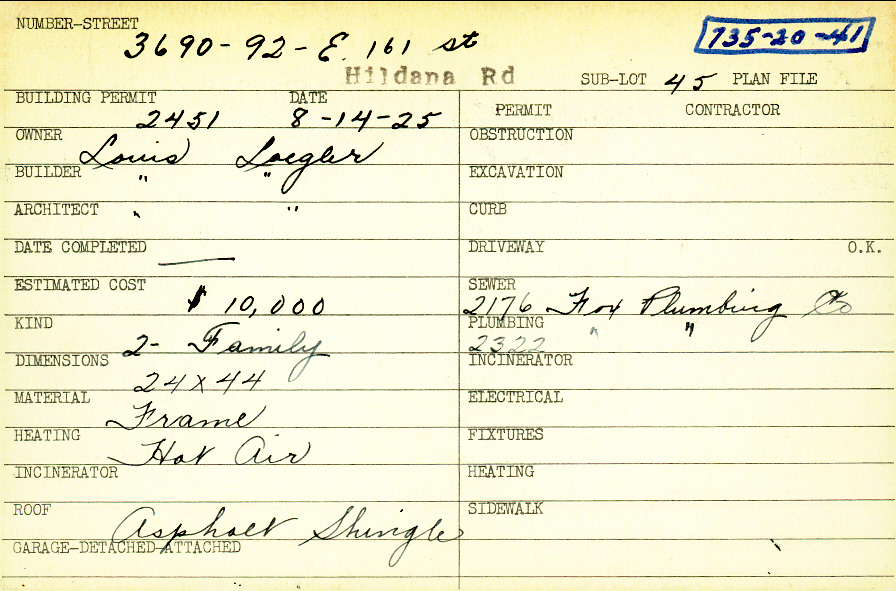 NUMBER-STREET 3690-92-E. 161 st 735-20-41
Hildana Rd SUB-LOT 45 PLAN FILE
BUILDING PERMIT 2451 DATE 8-14-25
PERMIT CONTRACTOR
OWNER Louis Loegler
OBSTRUCTION
BUILDER " "
EXCAVATION
ARCHITECT " "
CURB
DATE COMPLETED —
DRIVEWAY O.K.
ESTIMATED COST $ 10,000
SEWER 2176 Fox Plumbing Co
KIND 2- Family
PLUMBING 2322 " "
DIMENSIONS 24 x 44
INCINERATOR
MATERIAL Frame
ELECTRICAL
HEATING Hot Air
FIXTURES
INCINERATOR
HEATING
ROOF Asphalt Shingle
SIDEWALK
GARAGE-DETACHED-ATTACHED